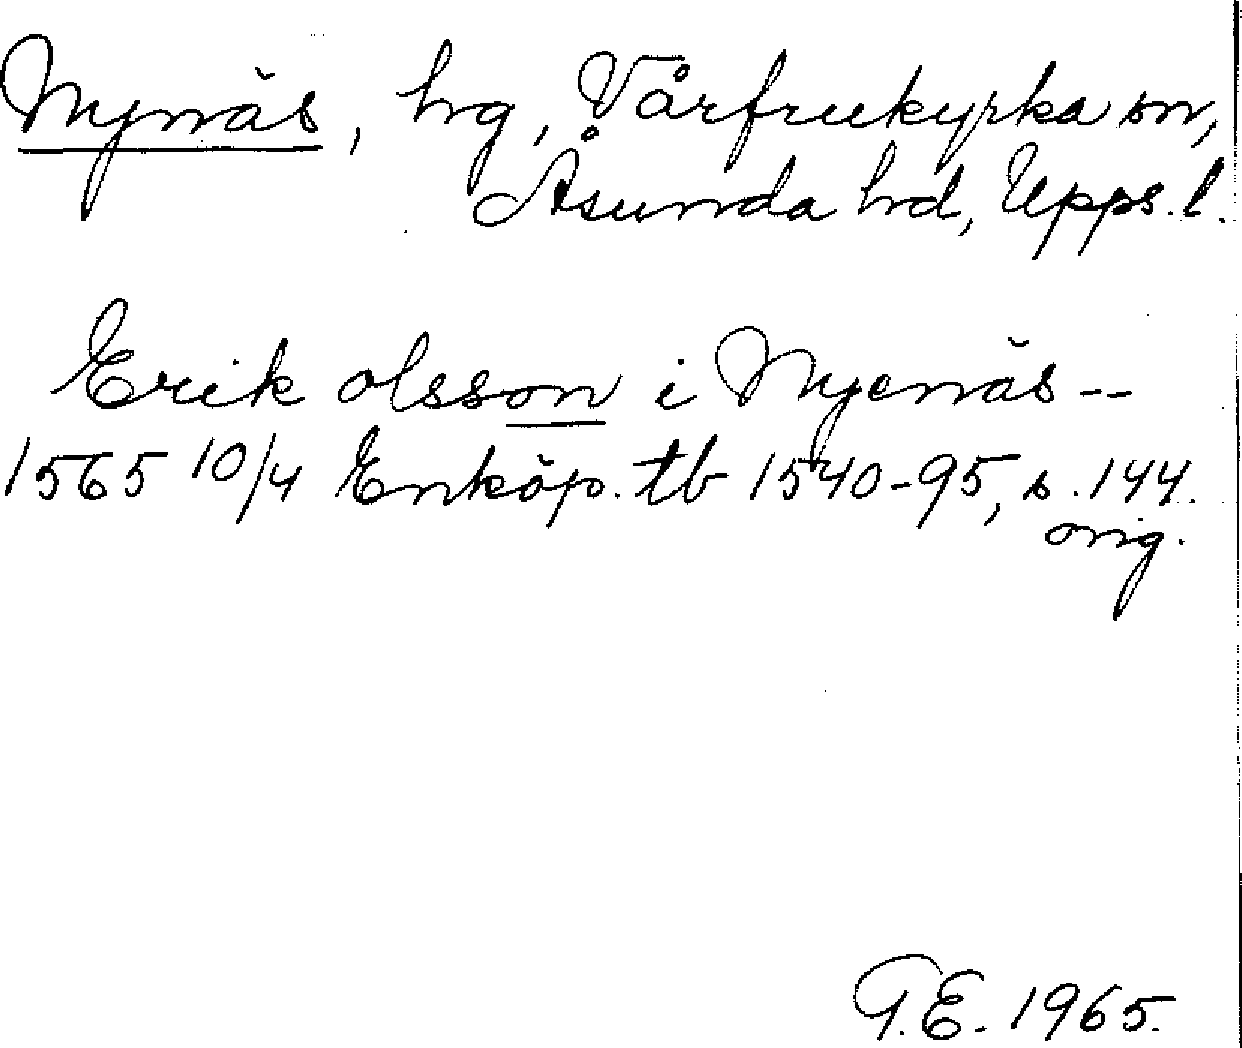 Nynäs, hg, Vårfrukyrka sn,
Åsunda hd, Upps. l.
Erik olsson i Nyenäs --
1565 10/4 Enköp. tb 1540-95, s. 144.
orig.
G.E. 1965.